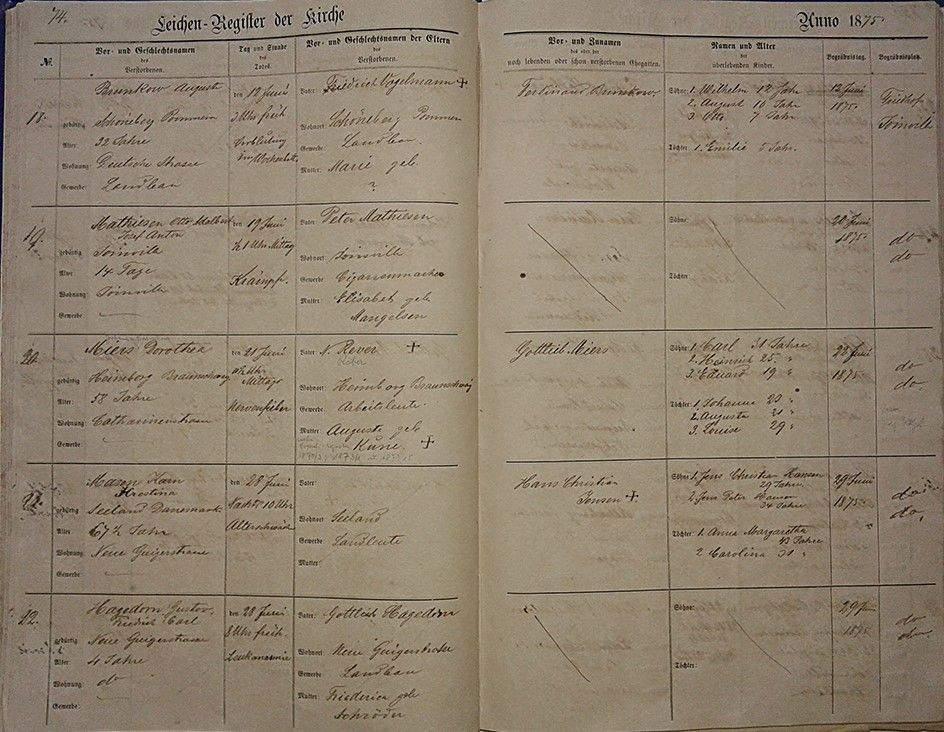 74.
Leichen-Register der Kirche
Anno 1875.
№.
Vor- und Geschlechtsnamen
des
Verstorbenen.
Tag und Stunde
des
Todes.
Vor- und Geschlechtsnamen der Eltern
des
Verstorbenen.
Vor- und Zunamen
des oder der
noch lebenden oder schon verstorbenen Ehegatten.
Namen und Alter
der
überlebenden Kinder.
Begräbnistag.
Begräbnisplatz.
18.
Brunkow Auguste
gebürtig Schöneberg Pommern
Alter: 32 Jahre
Wohnung: Deutsche Strasse
Gewerbe: Landbau
den 12 Juni
3 Uhr früh
Vater: Friedrich Vogelmann +
Wohnort: Schöneberg Pommern
Gewerbe: Landbau.
Mutter: Marie geb.
?
Ferdinand Brunkow
Söhne: 1. Wilhelm 12 Jahr
2. August 10 Jahr
3. Otto 7 Jahr
Töchter: 1. Emilie 5 Jahr.
12 Juni
1875.
Friedhof
Joinville
19.
Mathiesen Otto Adalbert
Josef Anton
gebürtig Joinville
Alter 14 Tage
Wohnung: Joinville
Gewerbe:
den 19 Juni
1 Uhr Mittag
Krämpf.
Vater: Peter Mathiesen
Wohnort: Joinville
Gewerbe Cigarrenmacher
Mutter: Elisabet geb
Mangelsen
Söhne:
Töchter
20 Juni
1875.
do
do
20.
Miers Dorothea
gebürtig Heimborg Braunschweig
Alter: 58 Jahre
Wohnung: Catharinenstrasse
Gewerbe:
den 21 Juni
Uhr
Mittags
Nervenfieber
Vater: N. Rever +
Wohnort: Heimborg Braunschweig
Gewerbe: Arbeitsleute.
Mutter: Auguste geb
Küne. +
Gottlieb Meiers
Söhne: 1. Carl 31 Jahre
2. Heinrich 25 "
3. Eduard 19 "
Töchter: 1. Johanna 23 "
2. Augusta 21 "
3. Louise 29 "
22 Juni
1875.
do
do
21.
Karn
Kirstina
gebürtig Seeland Danemark
Alter 67½ Jahr
Wohnung: Neue Guigerstrasse
Gewerbe:
den 28 Juni
Nachts 10 Uhr
Altersschwäche
Vater:
Wohnort: Seeland
Gewerbe Landleute
Mutter
Hans Christian
Jensen +
Söhne: 1. Jens Christian Hansen
29 Jahre
2. Jens Peter Hansen
24 Jahre
Töchter: 1. Anna Margaretha
Jahre
2. Carolina 31 "
29 Juni
1875.
do
do,
22.
Hagedorn Gustav,
Friedrich Carl
gebürtig Neue Guigerstrasse
Alter: 4 Jahre
Wohnung: do
Gewerbe:
den 28 Juni
8 Uhr früh.
Vater: Gottlieb Hagedorn
Wohnort Neue Guigerstrasse
Gewerbe: Landbau
Mutter: Friederica geb
Schröder
Söhne:
Töchter:
29 Juni
1875.
do